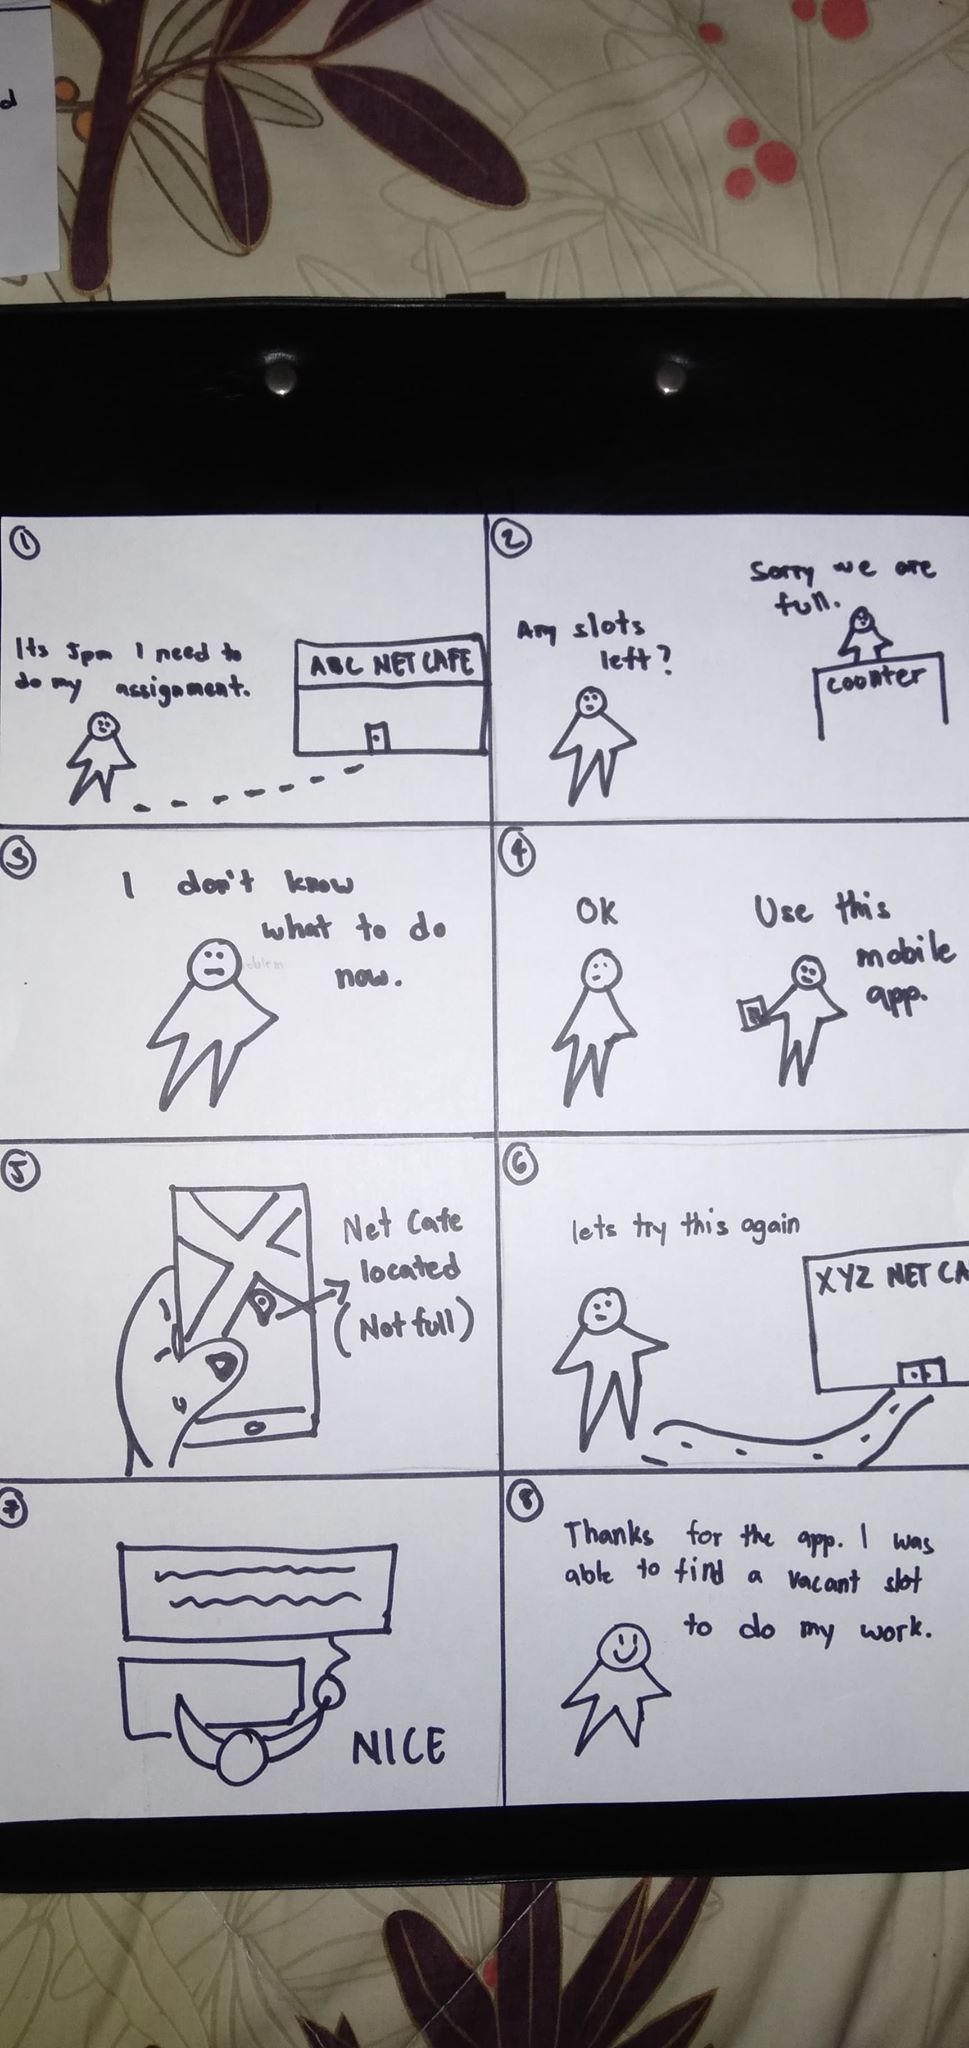 d
1
Its 5pm I need to
do my assignment.
ABC NET CAFE
2
Any slots
left?
Sorry we are
full.
counter
3
I don't know
what to do
now.
4
OK
Use this
mobile
app.
5
Net Cafe
located
(Not full)
6
lets try this again
XYZ NET CA
7
NICE
8
Thanks for the app. I was
able to find a vacant slot
to do my work.